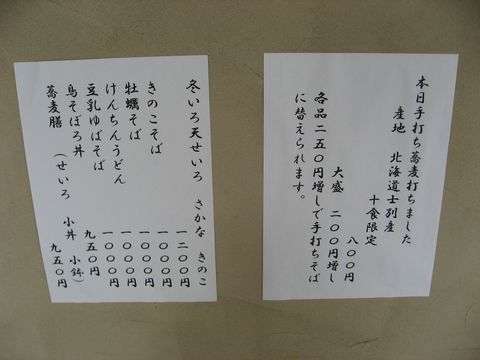 本日手打ち蕎麦打ちました
産地 北海道士別産
十食限定
八〇〇円
大盛 二〇〇円増し
各品二五〇円増しで手打ちそば
に替えられます。
冬いろ天せいろ さかな きのこ
一二〇〇円
きのこそば 一〇〇〇円
牡蠣そば 一〇〇〇円
けんちんうどん 一〇〇〇円
豆乳ゆばそば 一〇〇〇円
鳥そぼろ丼 九五〇円
蕎麦膳 (せいろ 小丼 小鉢)
九五〇円